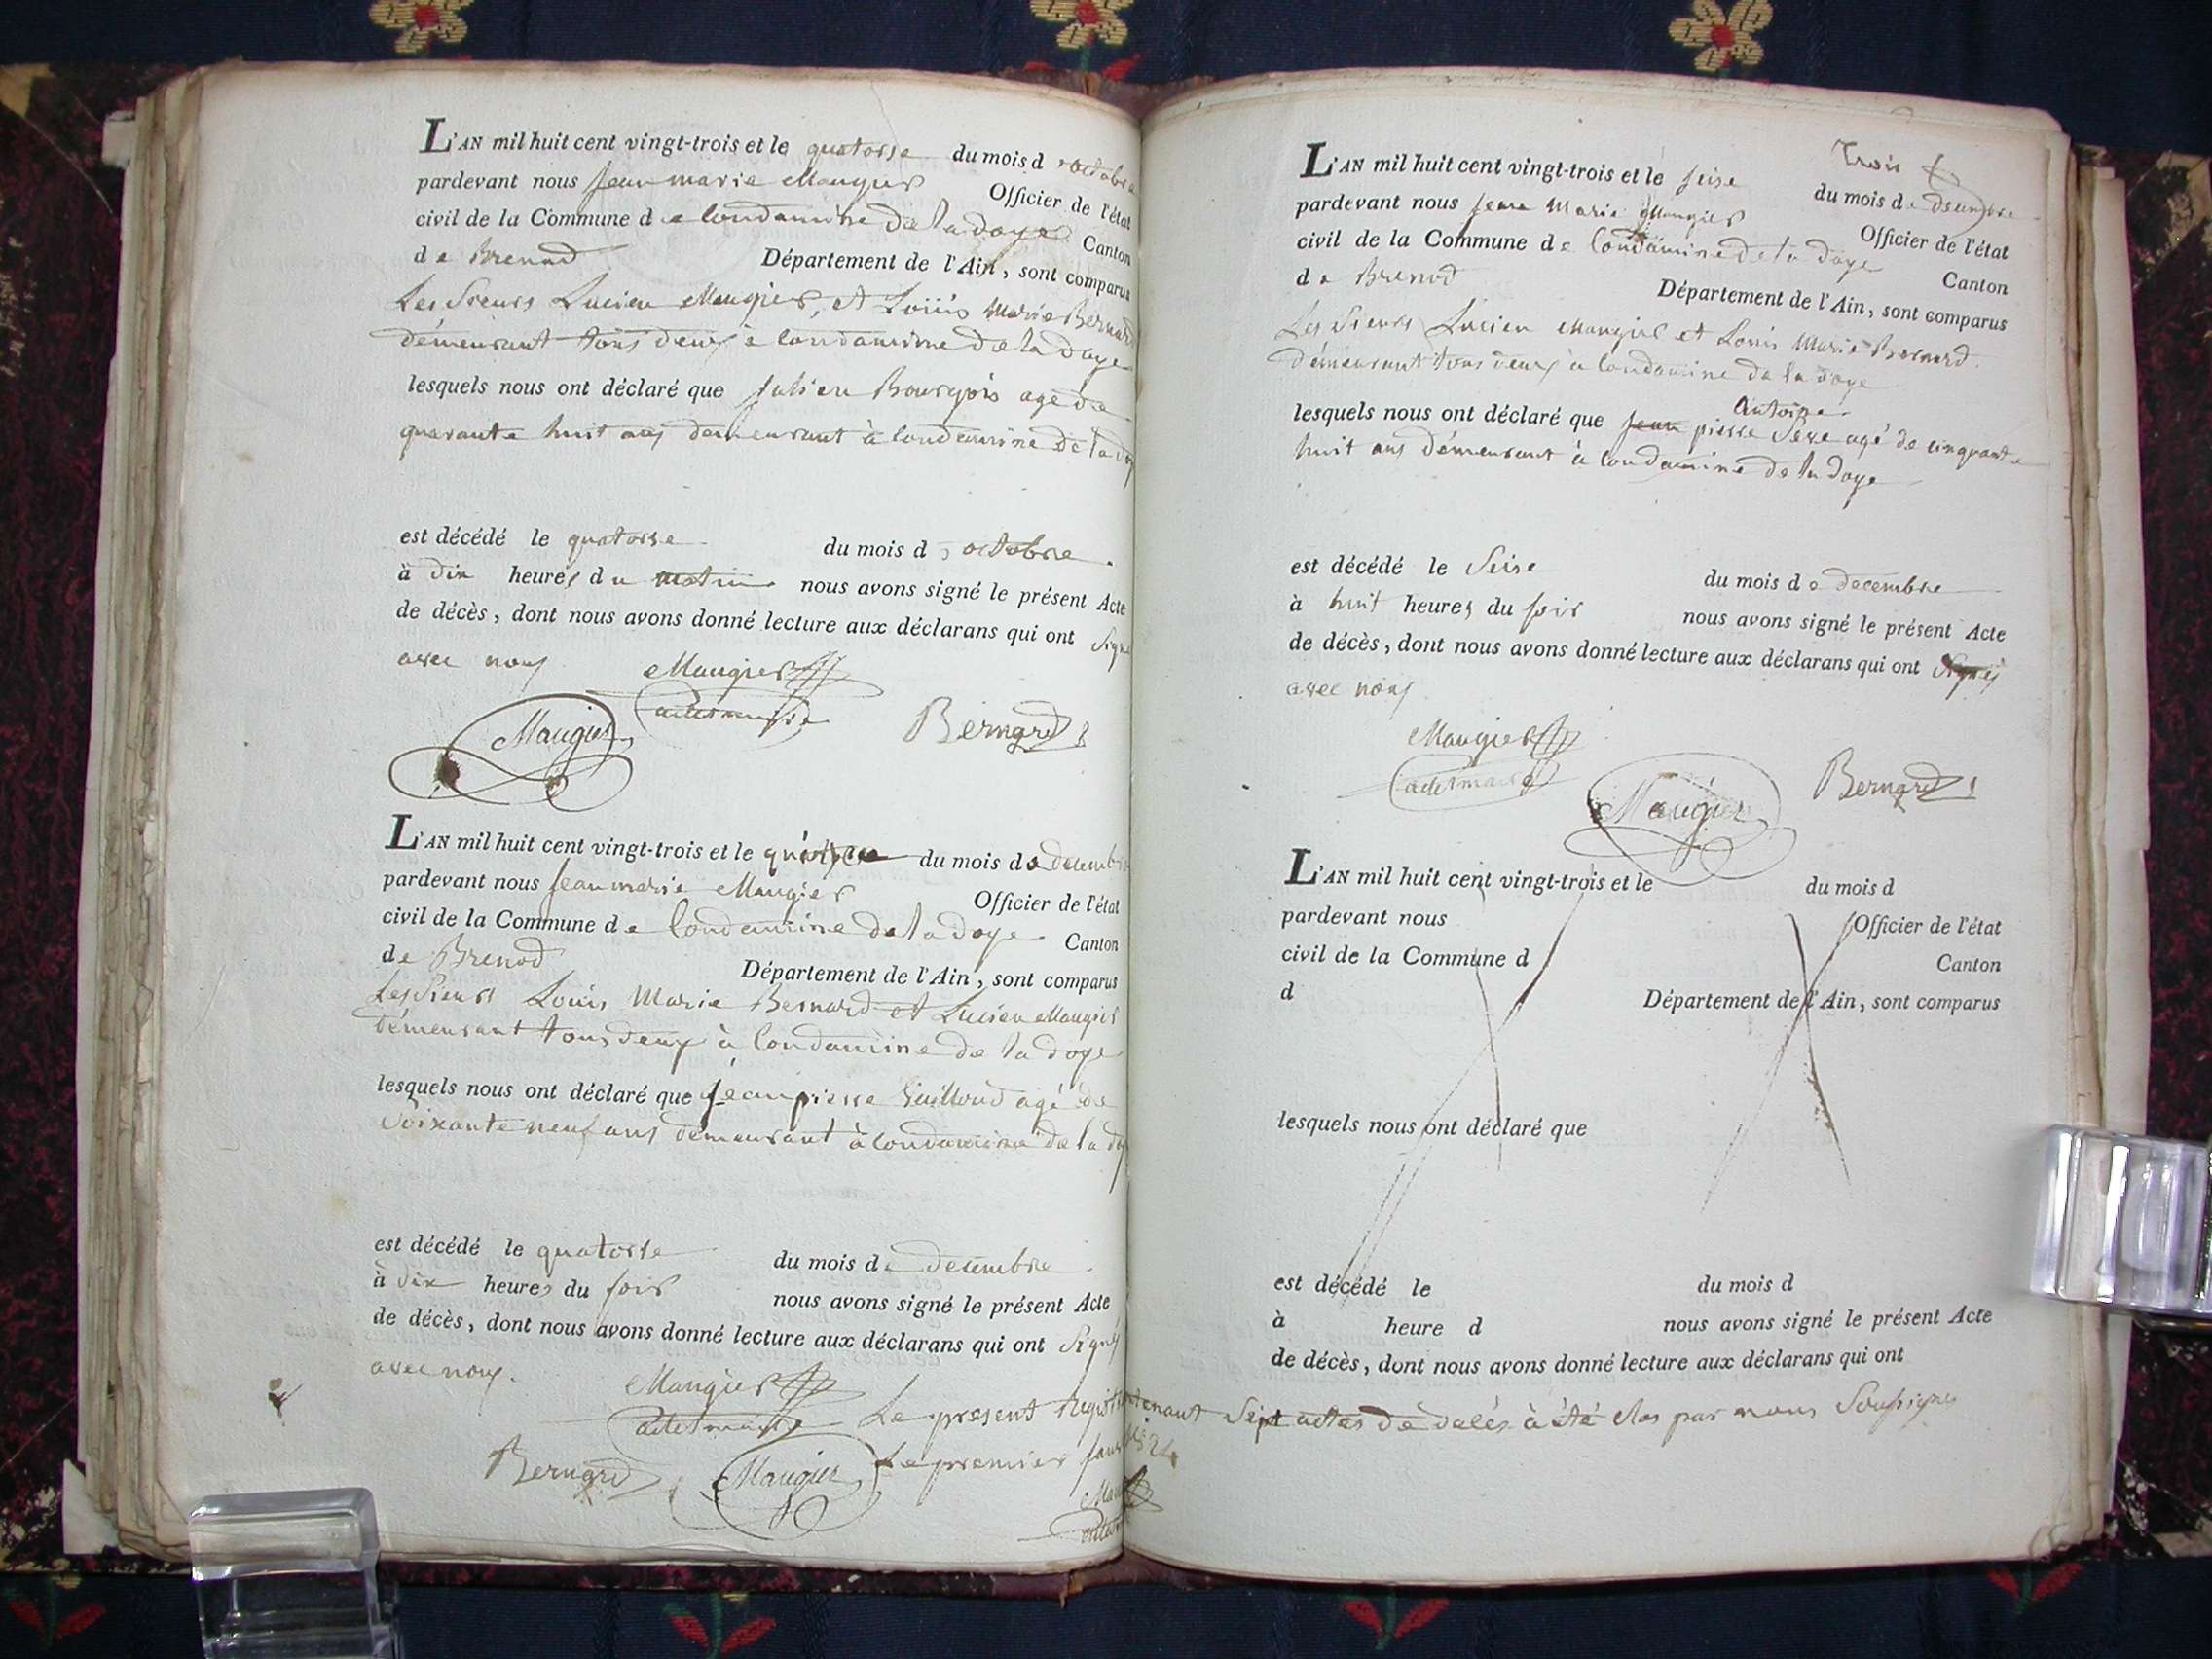 L'AN mil huit cent vingt-trois et le quatorse du mois d'octobre
pardevant nous Jean marie Maugier Officier de l'état
civil de la Commune de Condamine de la doye Canton
de Brenod Département de l'Ain, sont comparus
Les Sieurs Lucien Maugier, et Loüis Marie Bernard
démeurant tous deux à Condamine de la doye
lesquels nous ont déclaré que Julien Bourgois agé de
quarante huit ans demeurant à Condamine de la doy
est décédé le quatorse du mois d'octobre
à dix heures du matin nous avons signé le présent Acte
de décès, dont nous avons donné lecture aux déclarans qui ont Signé
avec nous
Maugier
Maugier Bernard
L'AN mil huit cent vingt-trois et le du mois de decembre
pardevant nous Jean marie Maugier Officier de l'état
civil de la Commune de Condamine de la doye Canton
de Brenod Département de l'Ain, sont comparus
Les Sieurs Louis Marie Bernard et Lucien Maugier
démeurant tous deux à Condamine de la doye
lesquels nous ont déclaré que Jean pierre Guilloud agé de
Soixante neuf ans démeurant à Condamine de la doy
est décédé le quatorse du mois de decembre
à dix heures du soir nous avons signé le présent Acte
de décès, dont nous avons donné lecture aux déclarans qui ont Signés
avec nous.
Maugier
Bernard Maugier
Trois
L'AN mil huit cent vingt-trois et le seise du mois de
pardevant nous Jean Marie Maugier Officier de l'état
civil de la Commune de Condamine de la doye Canton
de Brenod Département de l'Ain, sont comparus
Les Sieurs Lucien Maugier et Louis Marie Bernard
démeurant tous deux à Condamine de la doye
Antoine
lesquels nous ont déclaré que Jean pierre agé de cinquante
huit ans démeurant à Condamine de la doye
est décédé le Seise du mois de decembre
à huit heures du soir nous avons signé le présent Acte
de décès, dont nous avons donné lecture aux déclarans qui ont Signés
avec nous
Maugier
Maugier Bernard
L'AN mil huit cent vingt-trois et le du mois d
pardevant nous Officier de l'état
civil de la Commune d Canton
d Département de l'Ain, sont comparus
lesquels nous ont déclaré que
est décédé le du mois d
à heure d nous avons signé le présent Acte
de décès, dont nous avons donné lecture aux déclarans qui ont
Le present Sept actes de à été clos par nous Soussignés
Le premier